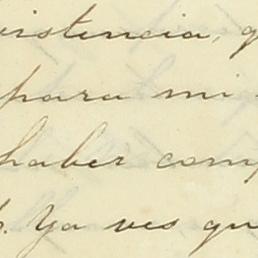 istencia, q
para mi
haber comp
. Ya ves qu